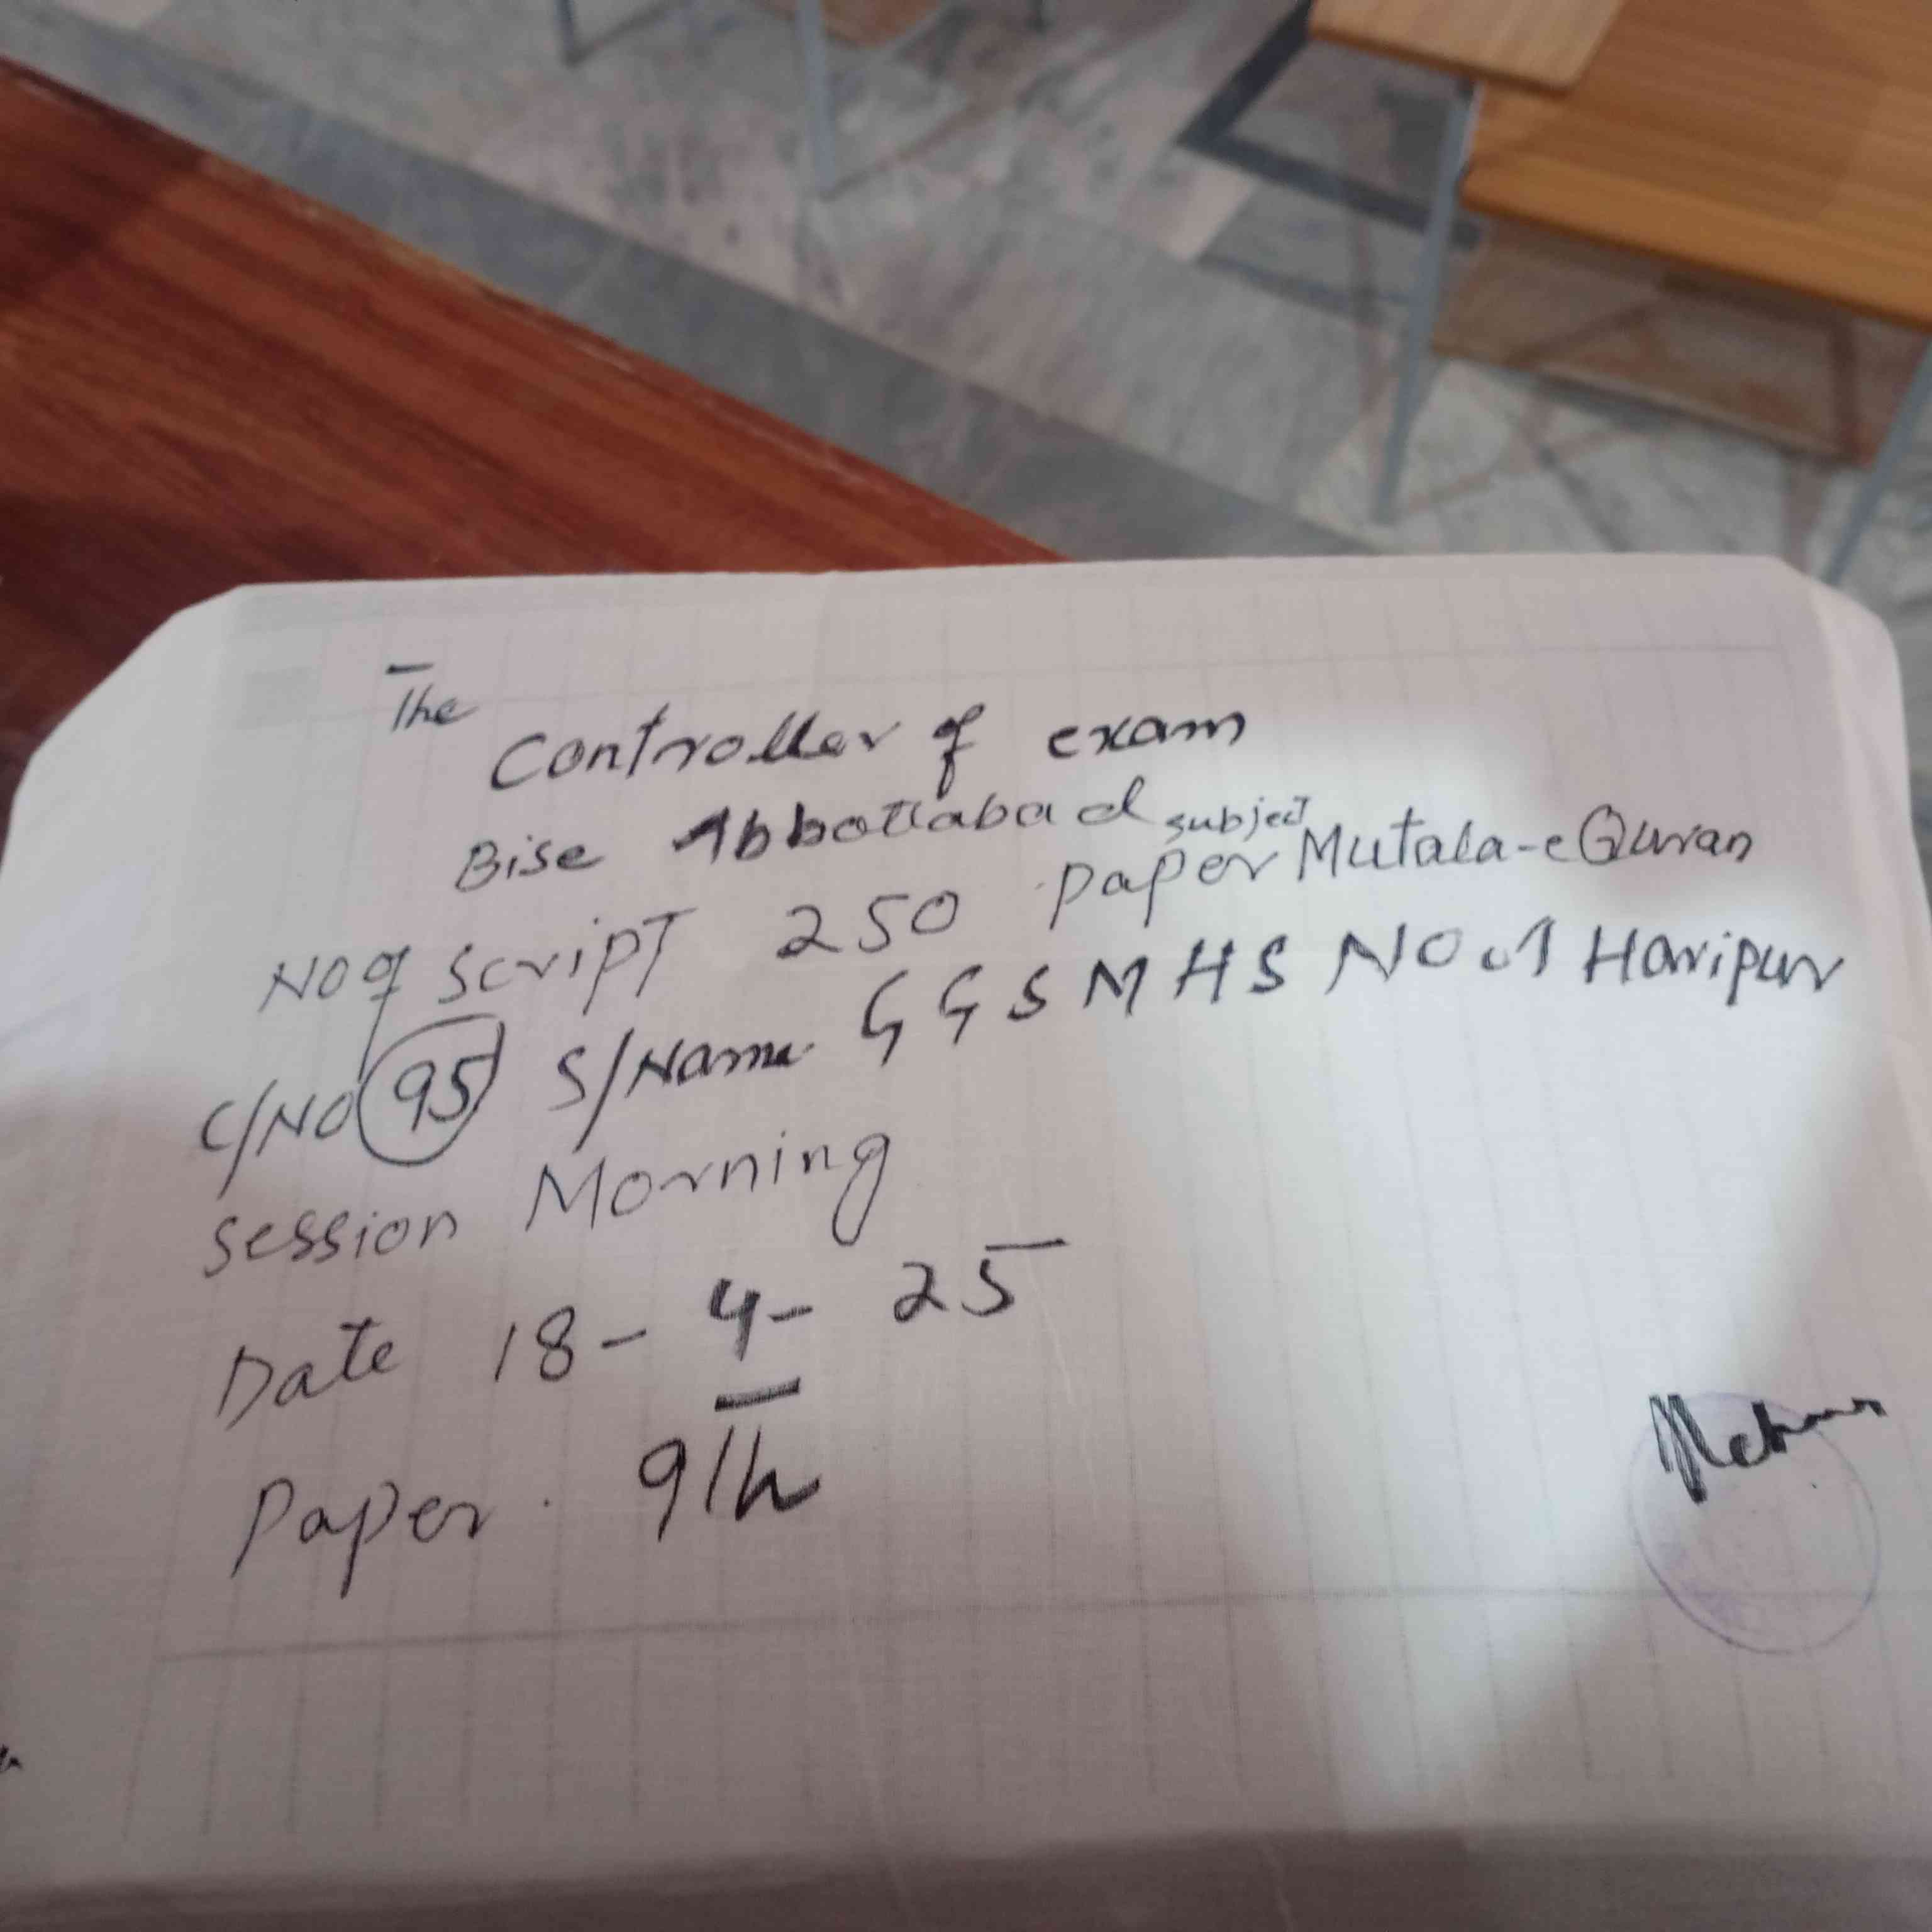 The
Controller of exam
Bise Abbottabad
No of Script 250 subject paper Mutala-e Quran
C/NO 95 S/Name GGSMHS NO.1 Haripur
session Morning
Date 18-4-25
Paper. 9th